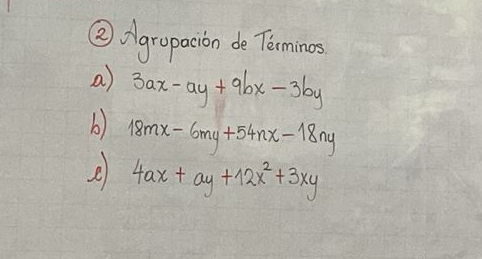 ② Agrupación de Términos
a) 3ax - ay + 9bx - 3by
b) 18mx - 6my + 54nx - 18ny
c) 4ax + ay + 12x² + 3xy